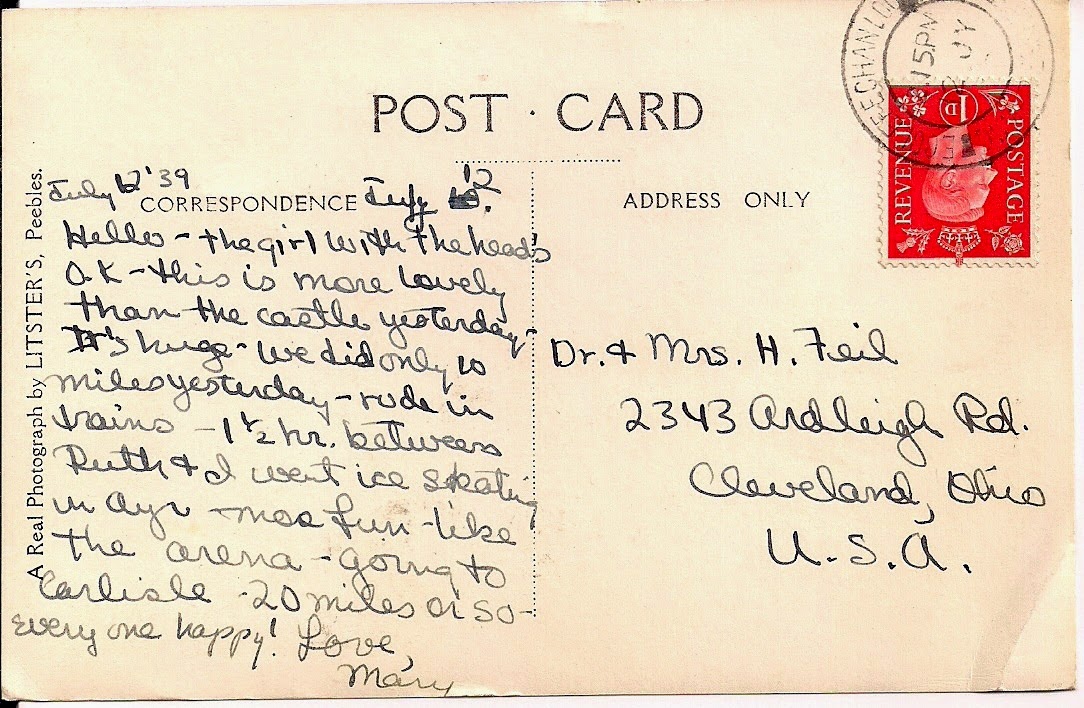 POST · CARD
CORRESPONDENCE
ADDRESS ONLY
A Real Photograph by LITSTER'S, Peebles.
July 12 '39
July
Hello - the girl with the heads
O.K - this is more lovely
than the castle yesterday -
It's huge - we did only 10
miles yesterday - rode in
trains - 1 1/2 hr. between
Ruth & I went ice skating
in Ayr - more fun - like
the arena - going to
Carlisle - 20 miles or so -
Every one happy! Love,
Mary
Dr. & Mrs. H. Feil
2343 Ardleigh Rd.
Cleveland, Ohio
U.S.A.
REVENUE
1D
POSTAGE
15 PM
JY